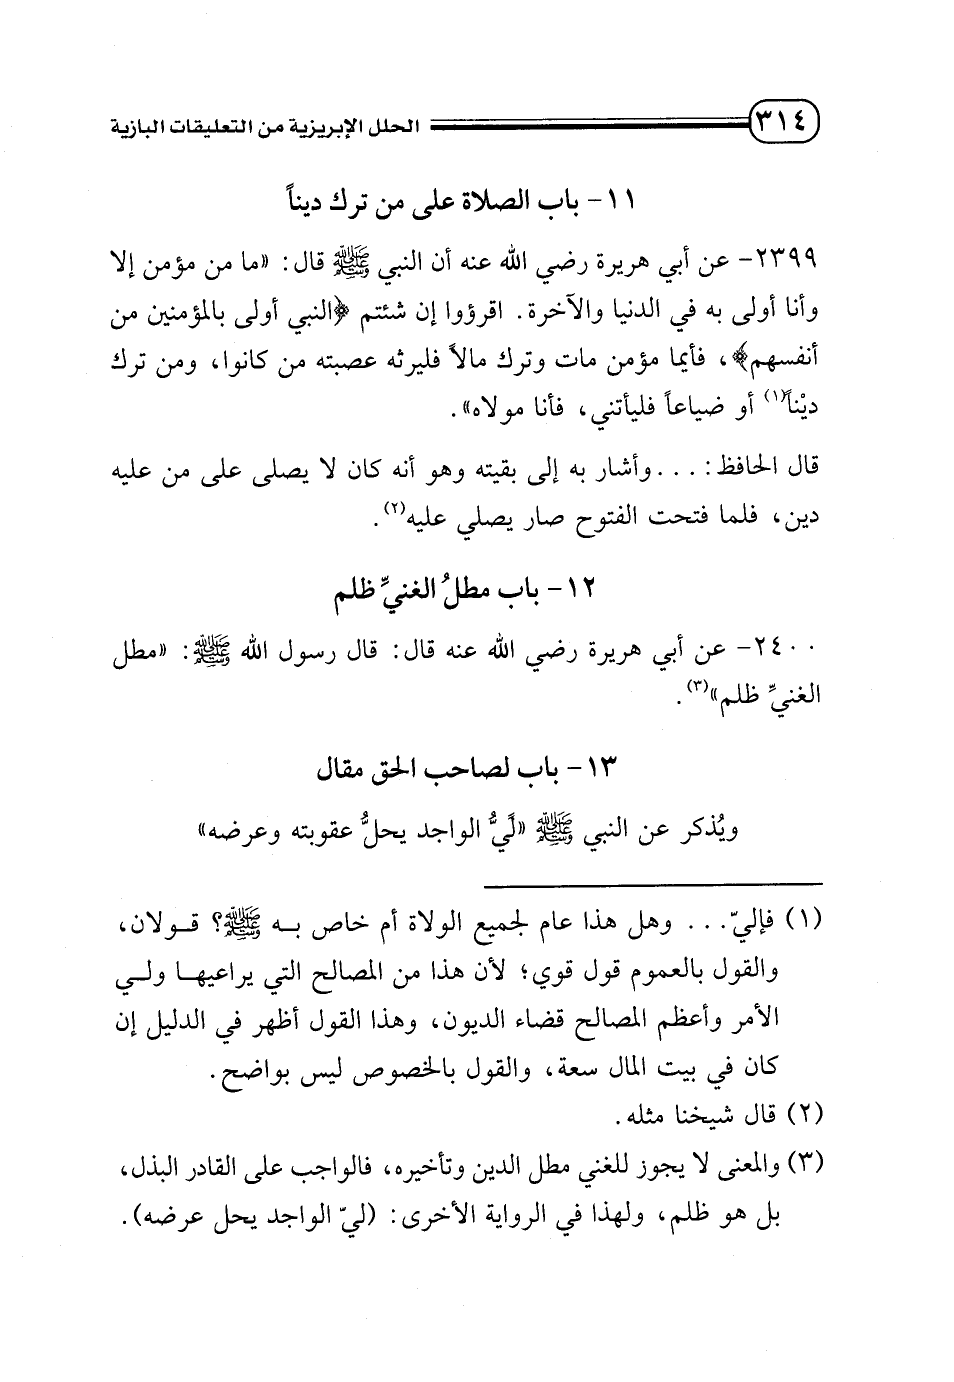 ٣١٤ الحلل الإبريزية من التعليقات البازية
١١- باب الصلاة على من ترك ديناً
٢٣٩٩- عن أبي هريرة رضي الله عنه أن النبي ﷺ قال: «ما من مؤمن إلا
وأنا أولى به في الدنيا والآخرة. اقرؤوا إن شئتم ﴿النبي أولى بالمؤمنين من
أنفسهم﴾، فأيما مؤمن مات وترك مالاً فليرثه عصبته من كانوا، ومن ترك
ديْناً(١) أو ضياعاً فليأتني، فأنا مولاه».
قال الحافظ: ...وأشار به إلى بقيته وهو أنه كان لا يصلى على من عليه
دين، فلما فتحت الفتوح صار يصلي عليه(٢).
١٢- باب مطلُ الغنيِّ ظلم
٢٤٠٠- عن أبي هريرة رضي الله عنه قال: قال رسول الله ﷺ: «مطل
الغنيِّ ظلم»(٣).
١٣- باب لصاحب الحق مقال
ويُذكر عن النبي ﷺ «لَيُّ الواجد يحلُّ عقوبته وعرضه»
(١) فإليّ... وهل هذا عام لجميع الولاة أم خاص به ﷺ؟ قولان،
والقول بالعموم قول قوي؛ لأن هذا من المصالح التي يراعيها ولي
الأمر وأعظم المصالح قضاء الديون، وهذا القول أظهر في الدليل إن
كان في بيت المال سعة، والقول بالخصوص ليس بواضح.
(٢) قال شيخنا مثله.
(٣) والمعنى لا يجوز للغني مطل الدين وتأخيره، فالواجب على القادر البذل،
بل هو ظلم، ولهذا في الرواية الأخرى: (ليّ الواجد يحل عرضه).